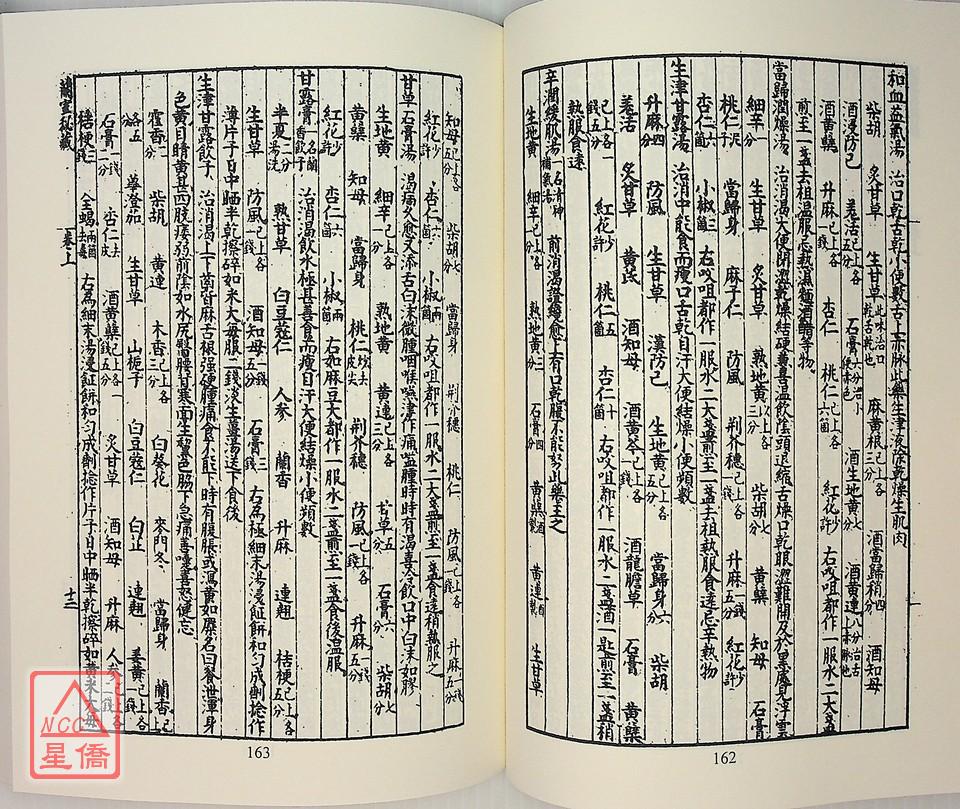 和血益氣湯 治口乾舌乾小便數舌上赤脉此藥生津液除乾燥生肌肉
柴胡 炙甘草 生甘草此味治口乾舌乾也 麻黃根已上各三分 酒當歸梢四分 酒知母
酒漢防己 羌活已上各五分 石膏六分治小便赤色 酒生地黃七分 酒黃連八分治舌上赤脉也
酒黃蘗 升麻已上各一錢 杏仁 桃仁已上各六箇 紅花少許 右㕮咀都作一服水二大盞
煎至一盞去柤温服忌熱濕麵酒醋等物
當歸潤燥湯 治消渴大便閉澁乾燥結硬兼喜温飲陰頭退縮舌燥口乾眼澁難開及於黑處見浮雲
細辛一分 生甘草 炙甘草 熟地黃以上各三分 柴胡七分 黃蘗 知母 石膏
桃仁泥子 當歸身 麻子仁 防風 荆芥穗已上各一錢 升麻一錢五分 紅花少許
杏仁六箇 小椒三箇 右㕮咀都作一服水二大盞煎至一盞去柤熱服食遠忌辛熱物
生津甘露湯 治消中能食而瘦口舌乾自汗大便結燥小便頻數
升麻四分 防風 生甘草 漢防己 生地黃已上各五分 當歸身六分 柴胡
羌活 炙甘草 黃芪 酒知母 酒黃芩已上各一錢 酒龍膽草 石膏 黃蘗
已上各一錢五分 紅花少許 桃仁五箇 杏仁十箇 右㕮咀都作一服水二盞酒一匙煎至一盞稍
熱服食遠
辛潤緩肌湯一名清神補氣湯 前消渴證纔愈止有口乾腹不能努此藥主之
生地黃 細辛已上各一分 熟地黃三分 石膏四分 黃蘗酒製 黃連酒製 生甘草
知母已上各五分 柴胡七分 當歸身 荆芥穗 桃仁 防風已上各一錢 升麻一錢五分
紅花少許 杏仁六箇 小椒兩箇 右㕮咀都作一服水二大盞煎至一盞食遠稍熱服之
甘草石膏湯 渴病久愈又添舌白沫微腫咽喉嚥津作痛嗌腫時時有渴喜冷飲口中白沫如膠
生地黃 細辛已上各一分 熟地黃 黃連已上各三分 甘草五分 石膏六分 柴胡七分
黃蘗 知母 當歸身 桃仁炒去皮尖 荆芥穗 防風已上各一錢 升麻一錢五分
紅花少許 杏仁六箇 小椒二箇 右如麻豆大都作一服水二盞煎至一盞食後温服
甘露膏一名蘭香飲子 治消渴飲水極甚善食而瘦自汗大便結燥小便頻數
半夏二分湯洗 熟甘草 白豆蔻仁 人參 蘭香 升麻 連翹 桔梗已上各五分
生甘草 防風已上各一錢 酒知母一錢五分 石膏三錢 右為極細末湯浸蒸餅和勻成劑捻作
薄片子日中曬半乾擦碎如米大每服二錢淡生薑湯送下食後
生津甘露飲子 治消渴上下齒皆麻舌根强硬腫痛食不能下時有腹脹或瀉黃如糜名曰飱泄渾身
色黃目睛黃甚四肢痿弱前陰如水尻臀腰背寒面生黧色脇下急痛善嚏喜怒健忘
藿香二分 柴胡 黃連 木香已上各三分 白葵花 麥門冬 當歸身 蘭香已上
各五分 蓽澄茄 生甘草 山梔子 白豆蔻仁 白芷 連翹 姜黃已上各一錢
石膏一錢二分 杏仁去皮 酒黃蘗已上各一錢五分 炙甘草 酒知母 升麻 人參已上各二錢
桔梗三錢 全蝎兩箇去毒 右為細末湯浸蒸餅和勻成劑捻作片子日中曬半乾擦碎如黃米大每
蘭室秘藏
卷上
十三
162
163
NCC
星僑